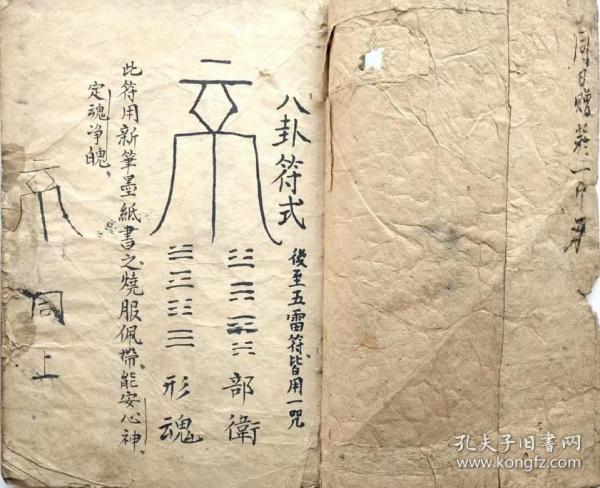 同日贈
八卦符式
後至五雷符皆用一咒
部衛
形魂
此符用新筆墨紙書之燒服佩帶能安心神
定魂净魄
同上
孔夫子旧书网
www.kongfz.com